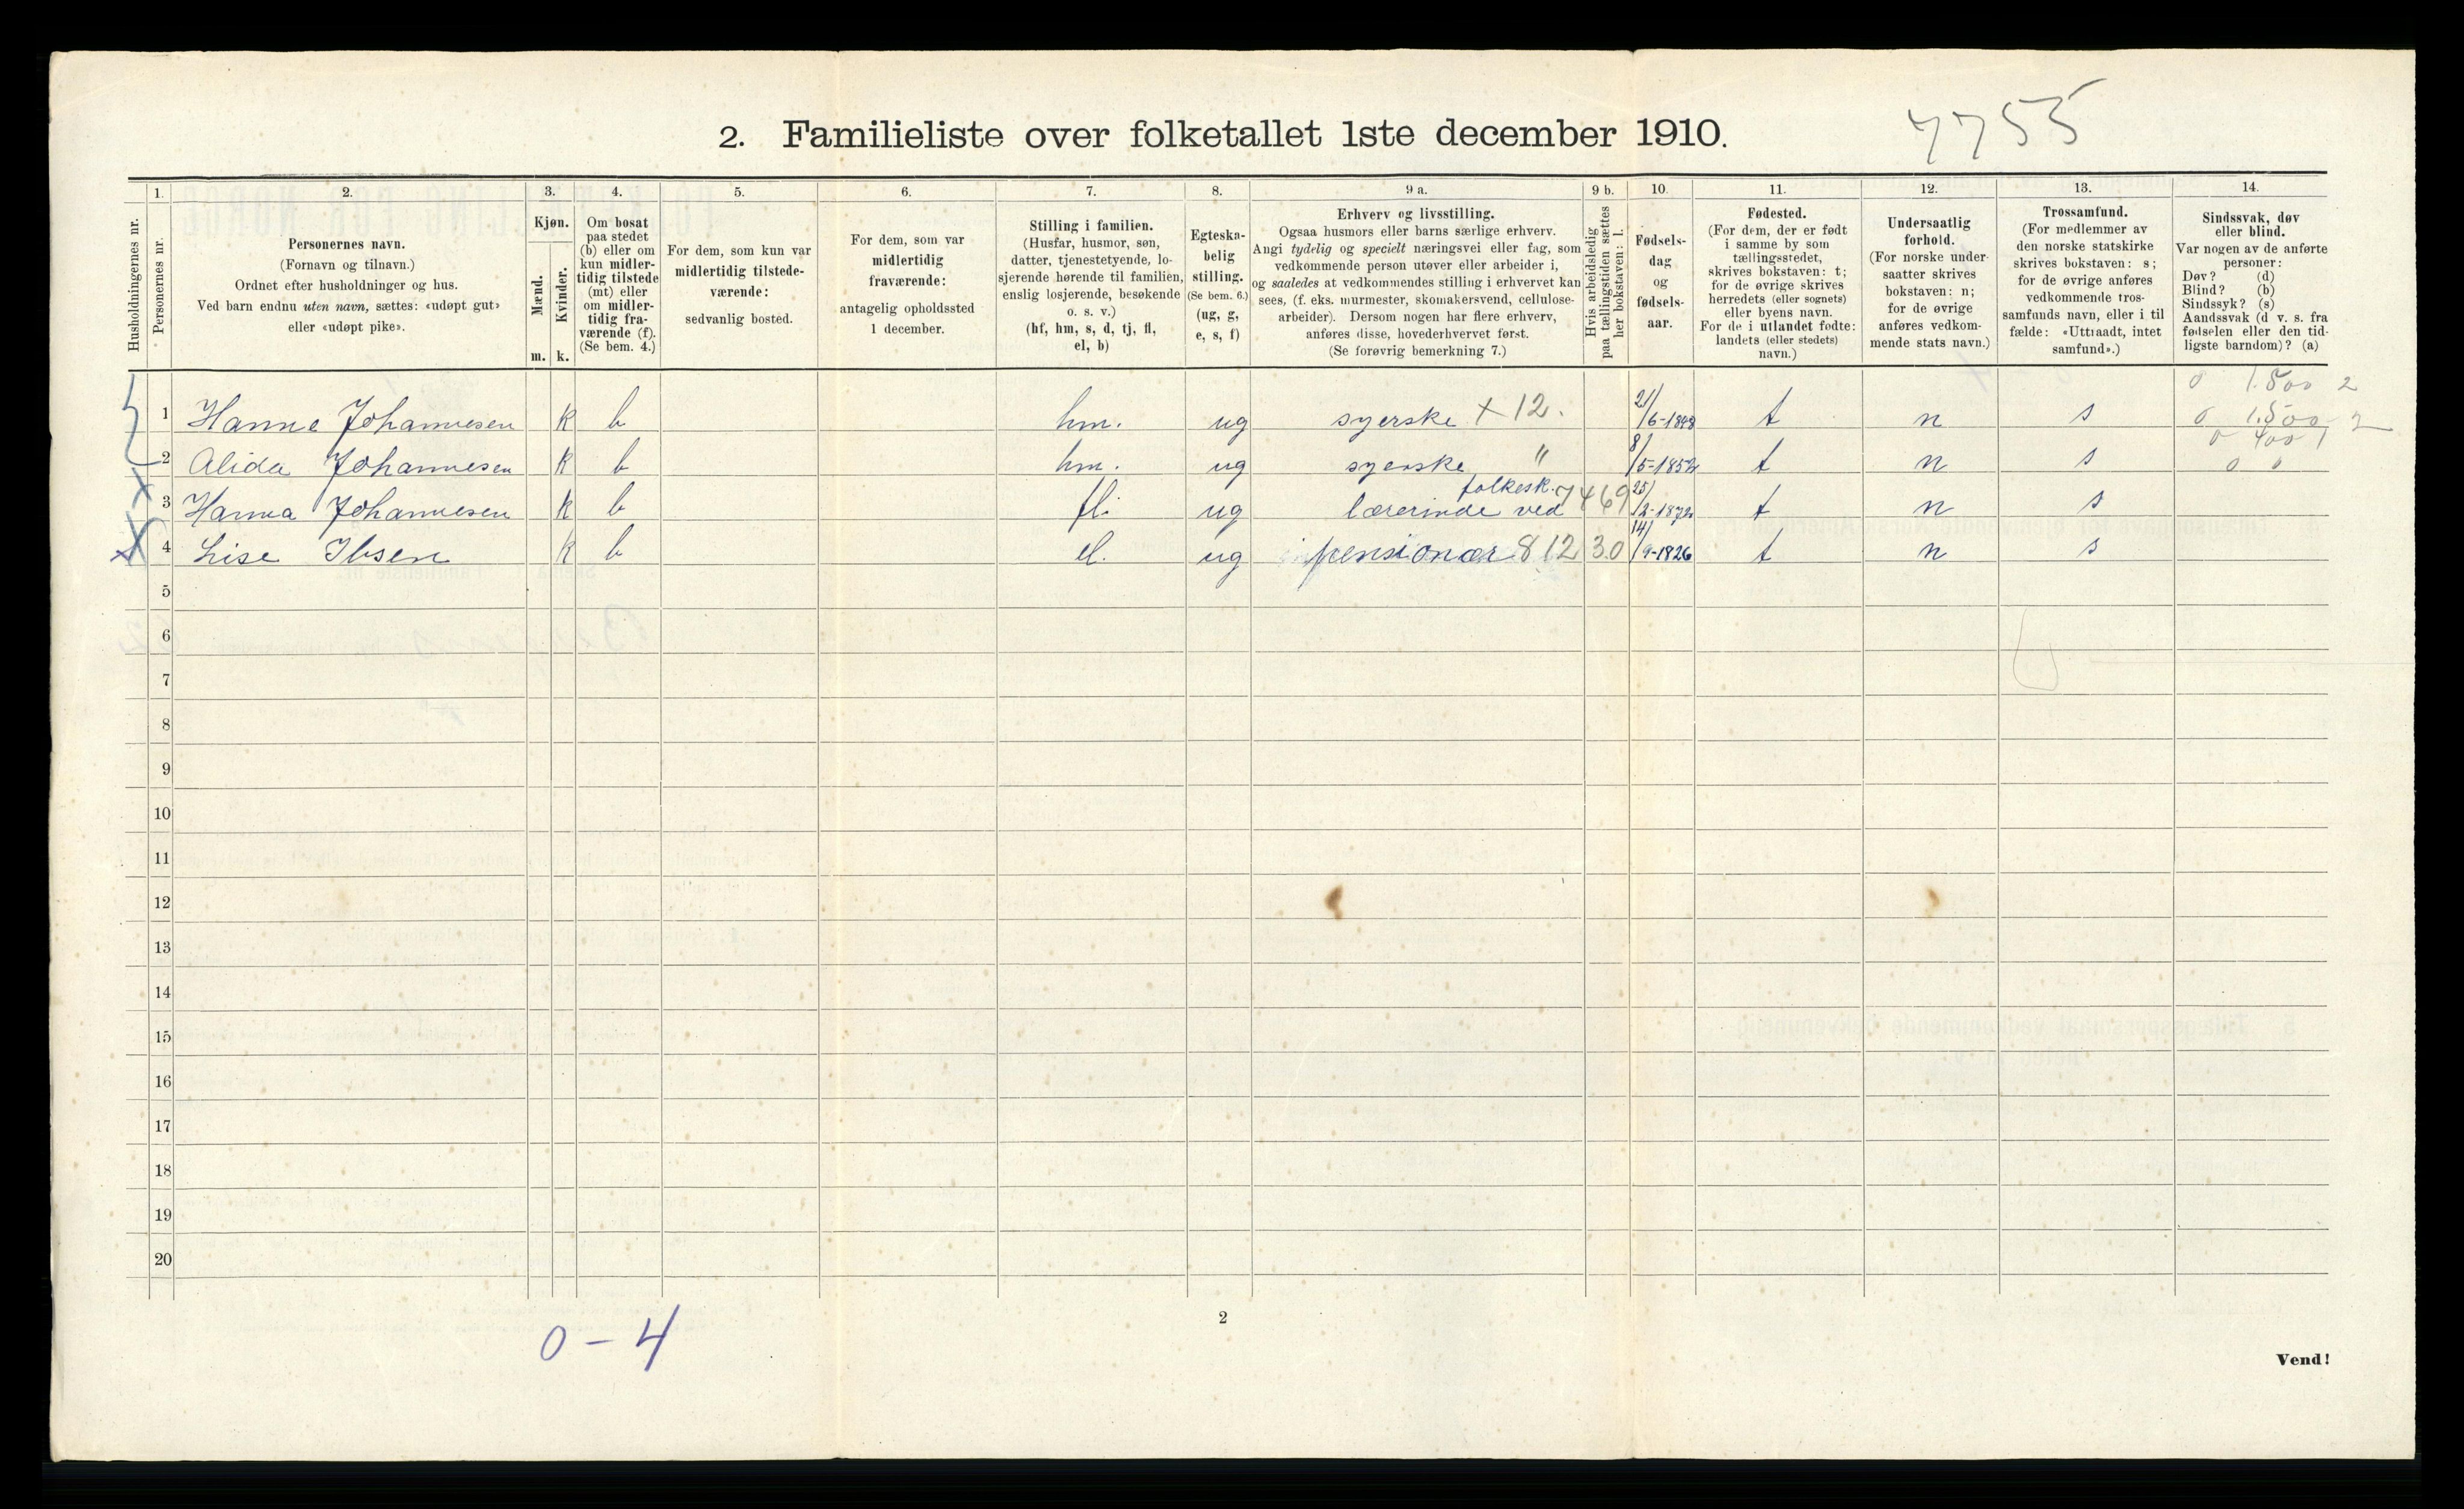 2. Familieliste over folketallet 1ste december 1910.
7755
Husholdningernes nr.
Personernes nr.
1.
2.
Personernes navn.
(Fornavn og tilnavn.)
Ordnet efter husholdninger og hus.
Ved barn endnu uten navn, sættes: «udøpt gut»
eller «udøpt pike».
3.
Kjøn.
Mænd.
Kvinder.
m. k.
4.
Om bosat
paa stedet
(b) eller om
kun midler-
tidig tilstede
(mt) eller
om midler-
tidig fra-
værende (f).
(Se bem. 4.)
5.
For dem, som kun var
midlertidig tilstede-
værende:
sedvanlig bosted.
6.
For dem, som var
midlertidig
fraværende:
antagelig opholdssted
1 december.
7.
Stilling i familien.
(Husfar, husmor, søn,
datter, tjenestetyende, lo-
sjerende hørende til familien,
enslig losjerende, besøkende
o. s. v.)
(hf, hm, s, d, tj, fl,
el, b)
8.
Egteska-
belig
stilling.
(Se bem. 6.)
(ug, g,
e, s, f)
9 a.
Erhverv og livsstilling.
Ogsaa husmors eller barns særlige erhverv.
Angi tydelig og specielt næringsvei eller fag, som
vedkommende person utøver eller arbeider i,
og saaledes at vedkommendes stilling i erhvervet kan
sees, (f. eks. murmester, skomakersvend, cellulose-
arbeider). Dersom nogen har flere erhverv,
anføres disse, hovederhvervet først.
(Se forøvrig bemerkning 7.)
9 b.
Hvis arbeidsledig
paa tællingstiden sættes
her bokstaven: l.
10.
Fødsels-
dag
og
fødsels-
aar.
11.
Fødested.
(For dem, der er født
i samme by som
tællingsstedet,
skrives bokstaven: t;
for de øvrige skrives
herredets (eller sognets)
eller byens navn.
For de i utlandet fødte:
landets (eller stedets)
navn.)
12.
Undersaatlig
forhold.
(For norske under-
saatter skrives
bokstaven: n;
for de øvrige
anføres vedkom-
mende stats navn.)
13.
Trossamfund.
(For medlemmer av
den norske statskirke
skrives bokstaven: s;
for de øvrige anføres
vedkommende tros-
samfunds navn, eller i til
fælde: «Uttraadt, intet
samfund».)
14.
Sindssvak, døv
eller blind.
Var nogen av de anførte
personer:
Døv? (d)
Blind? (b)
Sindssyk? (s)
Aandssvak (d v. s. fra
fødselen eller den tid-
ligste barndom)? (a)
0 1.500 2
1 Hanne Johannesen k b hm. ug syerske + 12. 21/6- t n s 0 1.500 2
0 400 1
2 Alida Johannesen k b hm. ug syerske " 8/5-1852 t n s 0 0
3 Hanna Johannesen k b fl. ug lærerinde ved folkesk. 7469 25/2-1872 t n s
4 Lise Ibsen k b el. ug pensionær 812 30 14/9-1826 t n s
5
6
7
8
9
10
11
12
13
14
15
16
17
18
19
20
0 - 4
2
Vend!